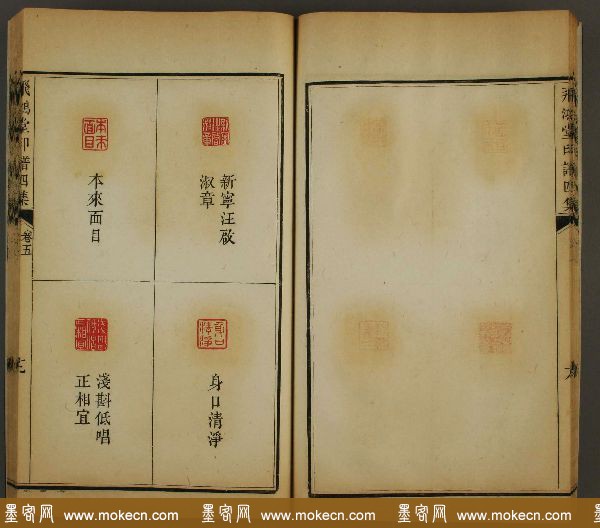 飛鴻堂印譜四集
卷五
新寧汪啟
淑章
本來面目
身口清淨
淺斟低唱
正相宜
飛鴻堂印譜四集
墨客网 www.mokecn.com 墨客网 www.mokecn.com 墨客网 www.mokecn.com